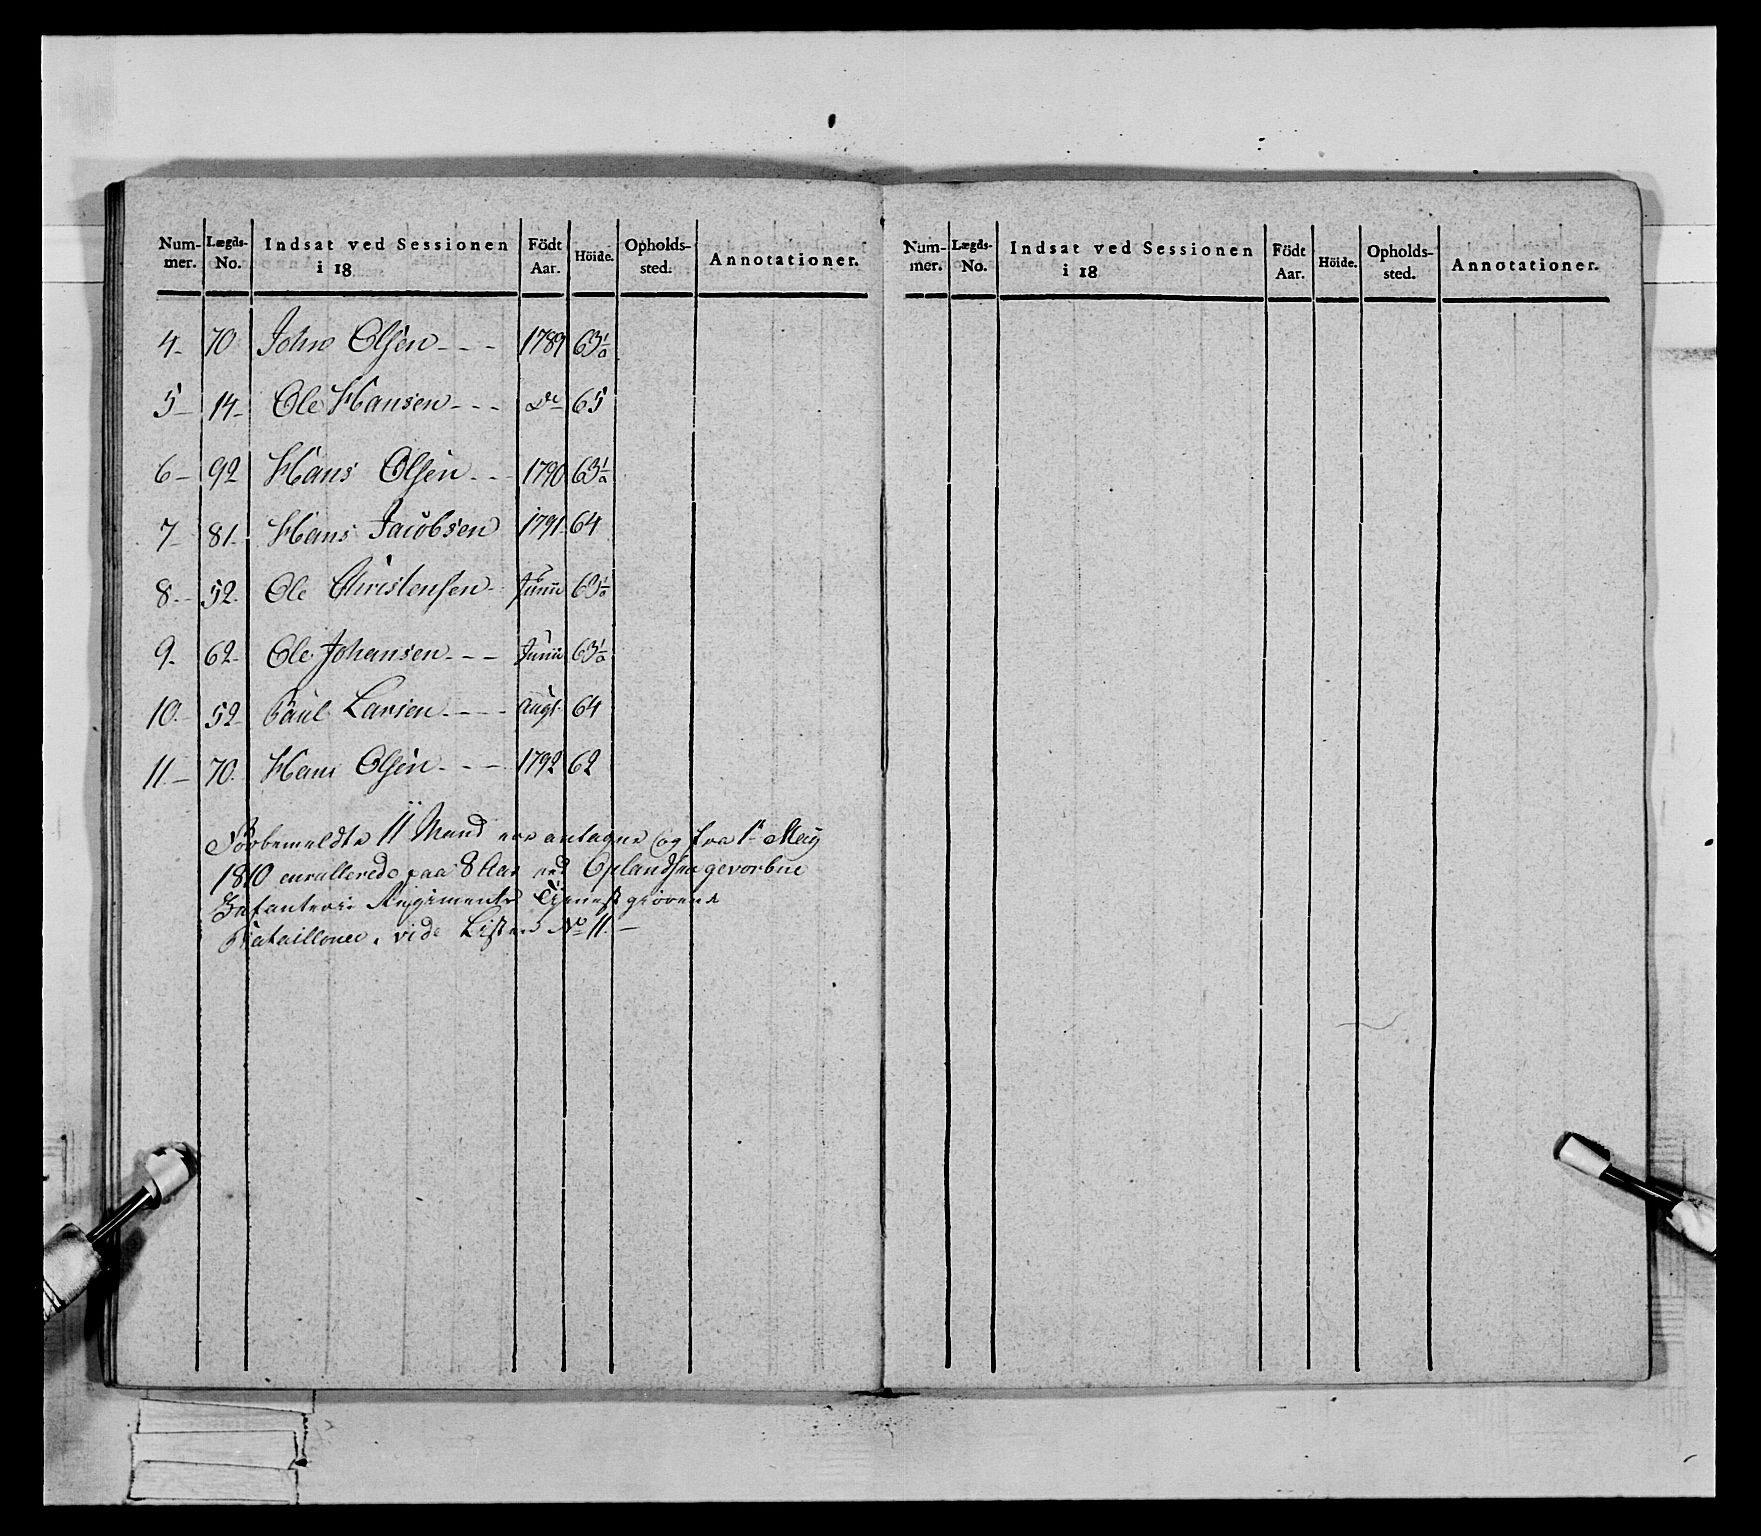 Num- Lægds- Indsat ved Sessionen Födt Höide. Opholds- Annotationer.
mer. No. i 18 Aar. sted.
4- 70 John Olsen - - - 1789 63½
5- 14- Ole Hansen - - - do 65
6- 92 Hans Olsen - - 1790 63½
7- 81- Hans Jacobsen 1791- 64
8- 52- Ole Christensen- Junii 63½
9- 62- Ole Johansen - - - Junii 63½
10- 52- Paul Larsen - - - - Augt. 64
11- 70- Hans Olsen - - - 1792 62
Forbemeldte 11 Mand ere antagne og fra 1te May
1810 enrullerede paa 8 Aar ved Oplandske gevorbne
Infanterie Regiments Tjenestgiörende
Batailloner, vide Listen No 11. -
Num- Lægds- Indsat ved Sessionen Födt Höide. Opholds- Annotationer.
mer. No. i 18 Aar. sted.